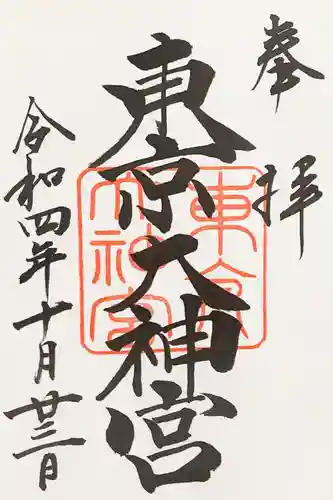 奉拝
東京大神宮
東京大神宮
令和四年十月廿三日